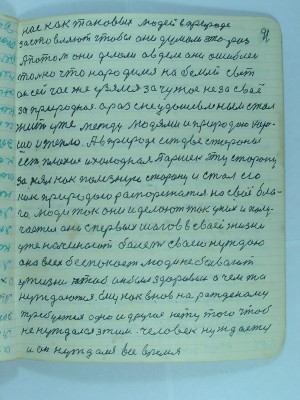 нас как таковых людей в природе
заставляют чтобы они думали это раз
А потом они делали а в деле они ошиблись
только что народился на белый свет
он сейчас же увязся за чужое не за своё
за природное а раз с неудушевлённым стал
жить уже между людями и природою хоро-
шо и тепло. А в природе есть две стороны
есть плохие и холодная Паршек эту сторону
занял как полезную сторону и стал его
как природою распоряжаться на своё бла-
го. люди так они и делают так у них и полу-
чается они с первых шагов в своей жизни
уже начинают болеть своею нуждою
она всех беспокоит люди не бывают
в жизни чтоб он был здоровый а чем то
нуждаются ему как вновь на рожденому
требуется одно и другое нету того чтоб
не нуждался этим. человек нуждается
и он нуждался все время